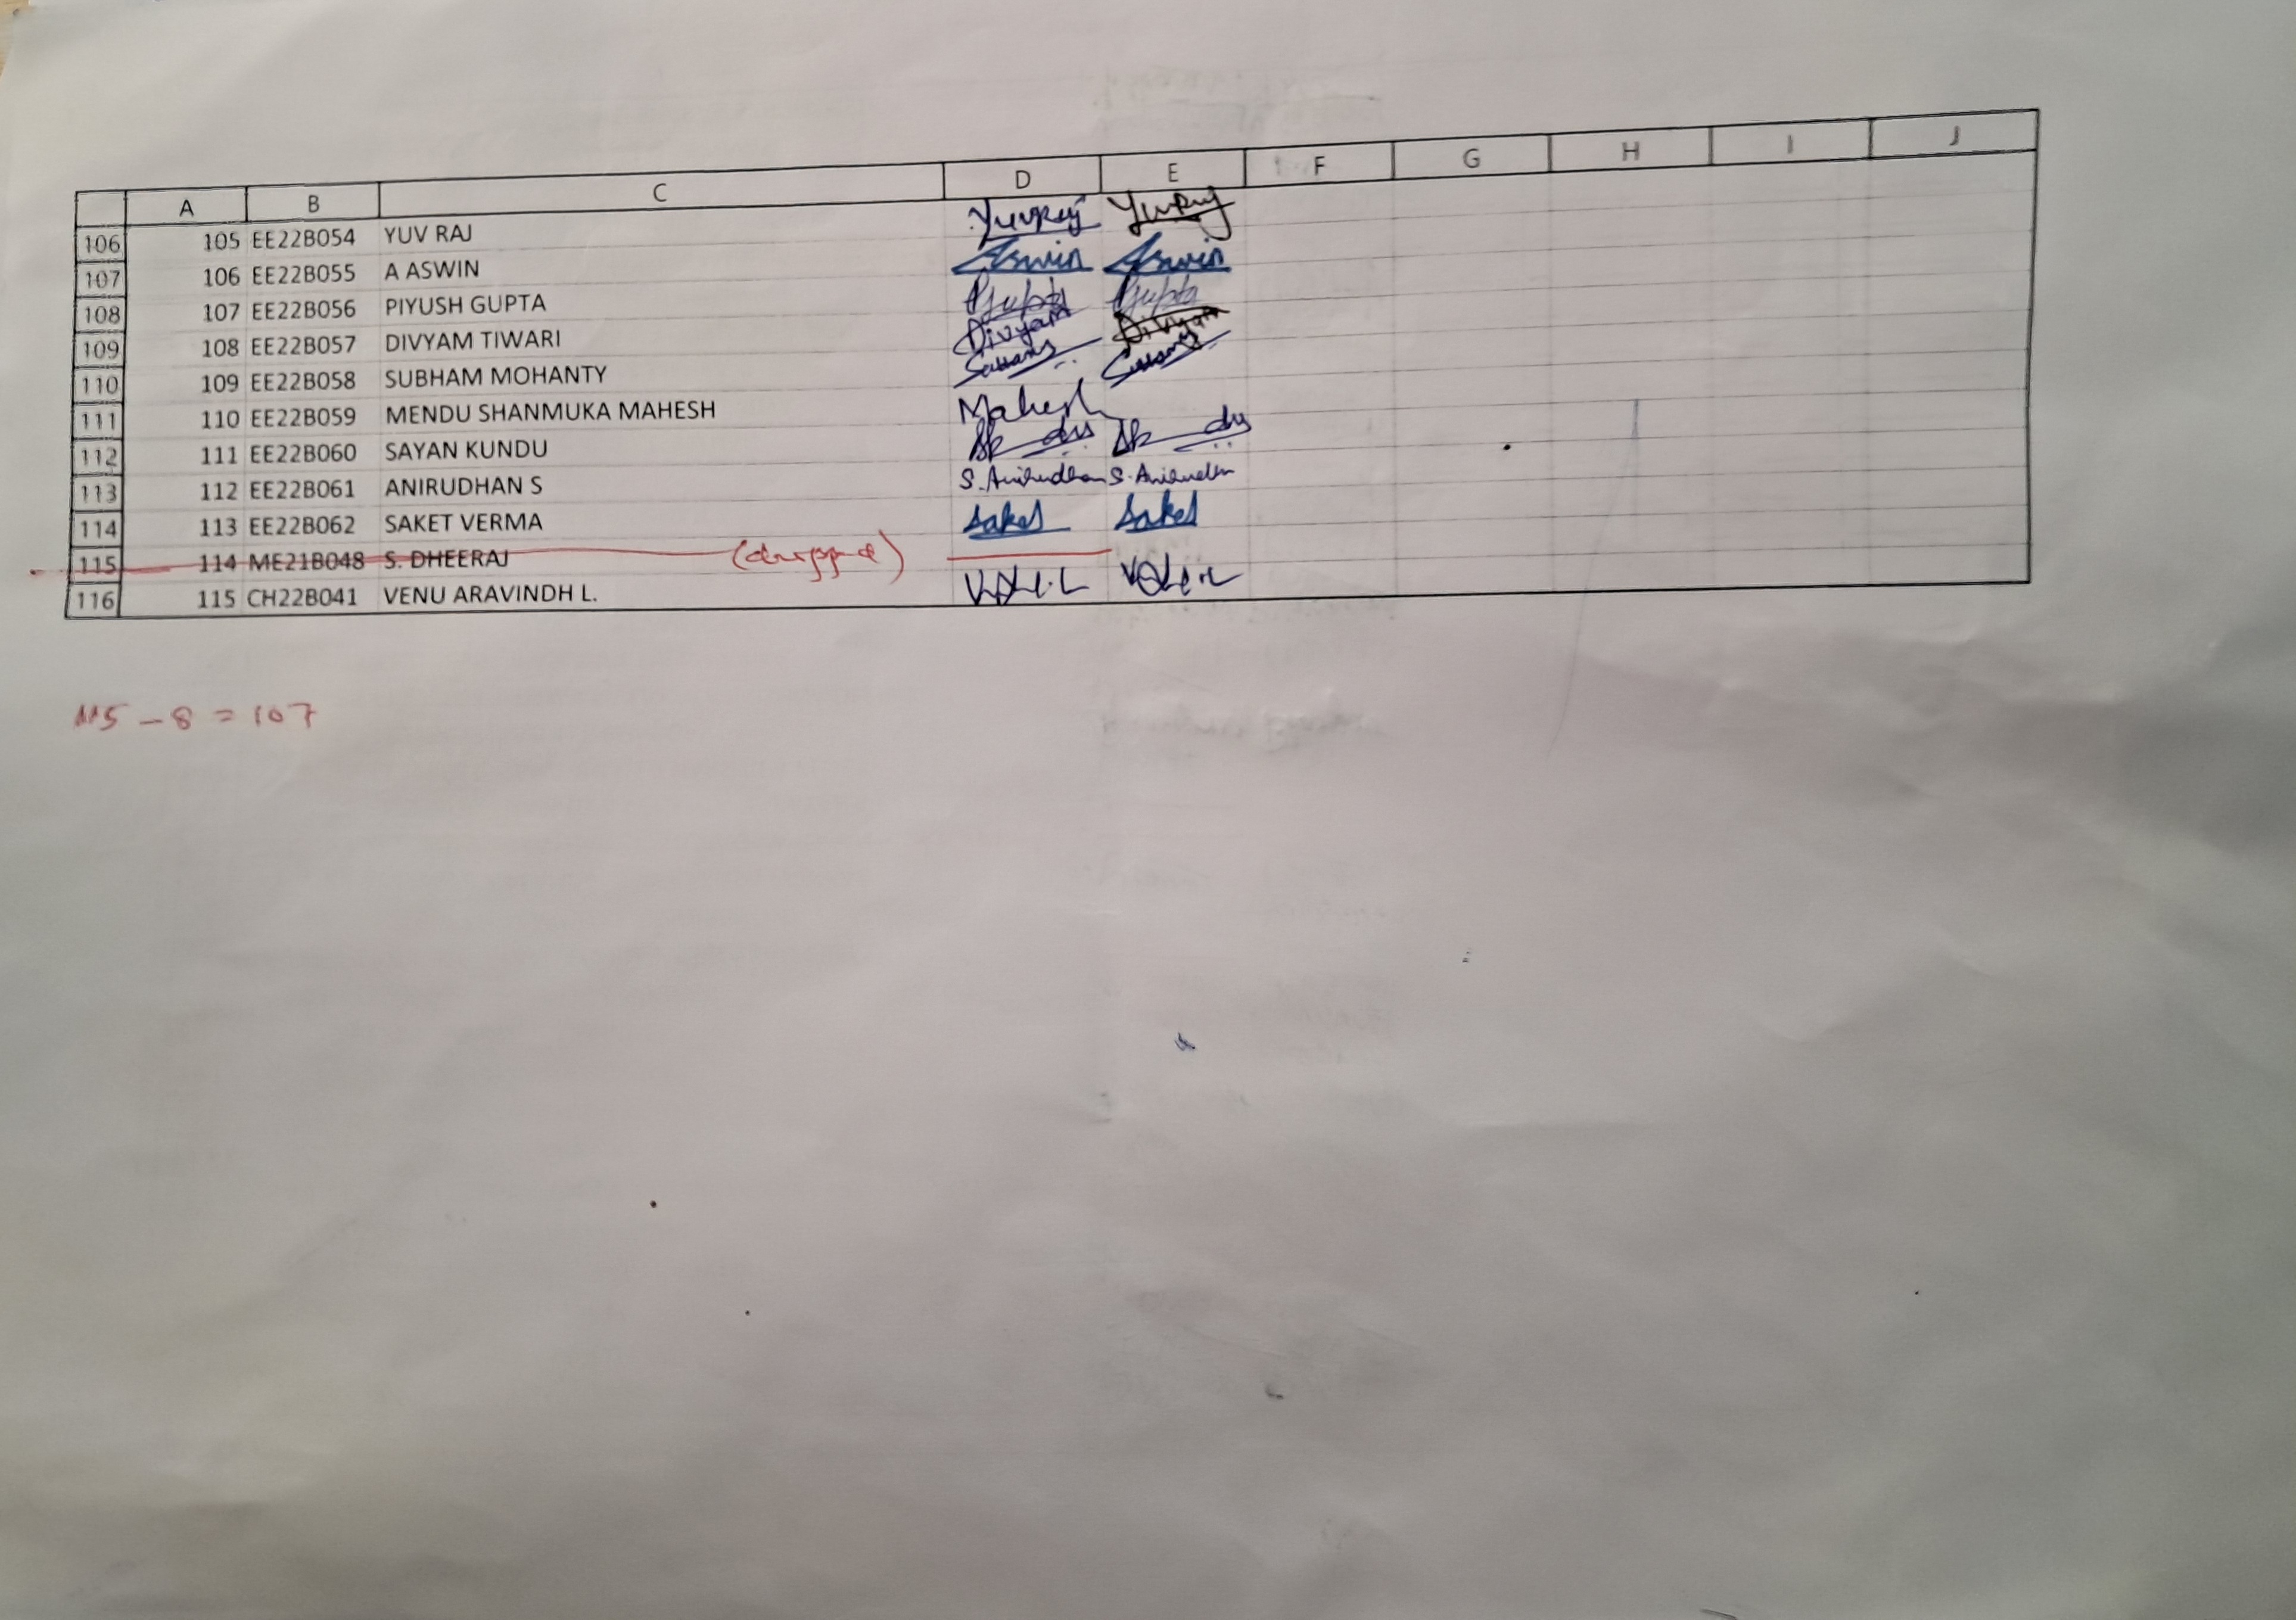 A B C D E F G H I J
106 105 EE22B054 YUV RAJ Yuvraj Yuvraj
107 106 EE22B055 A ASWIN Aswin Aswin
108 107 EE22B056 PIYUSH GUPTA PGupta PGupta
109 108 EE22B057 DIVYAM TIWARI Divyam Divyam
110 109 EE22B058 SUBHAM MOHANTY
111 110 EE22B059 MENDU SHANMUKA MAHESH Mahesh
112 111 EE22B060 SAYAN KUNDU
113 112 EE22B061 ANIRUDHAN S S. Anirudhan S. Anirudhan
114 113 EE22B062 SAKET VERMA Saket Saket
115 114 ME21B048 S. DHEERAJ (dropped)
116 115 CH22B041 VENU ARAVINDH L.
115 - 8 = 107